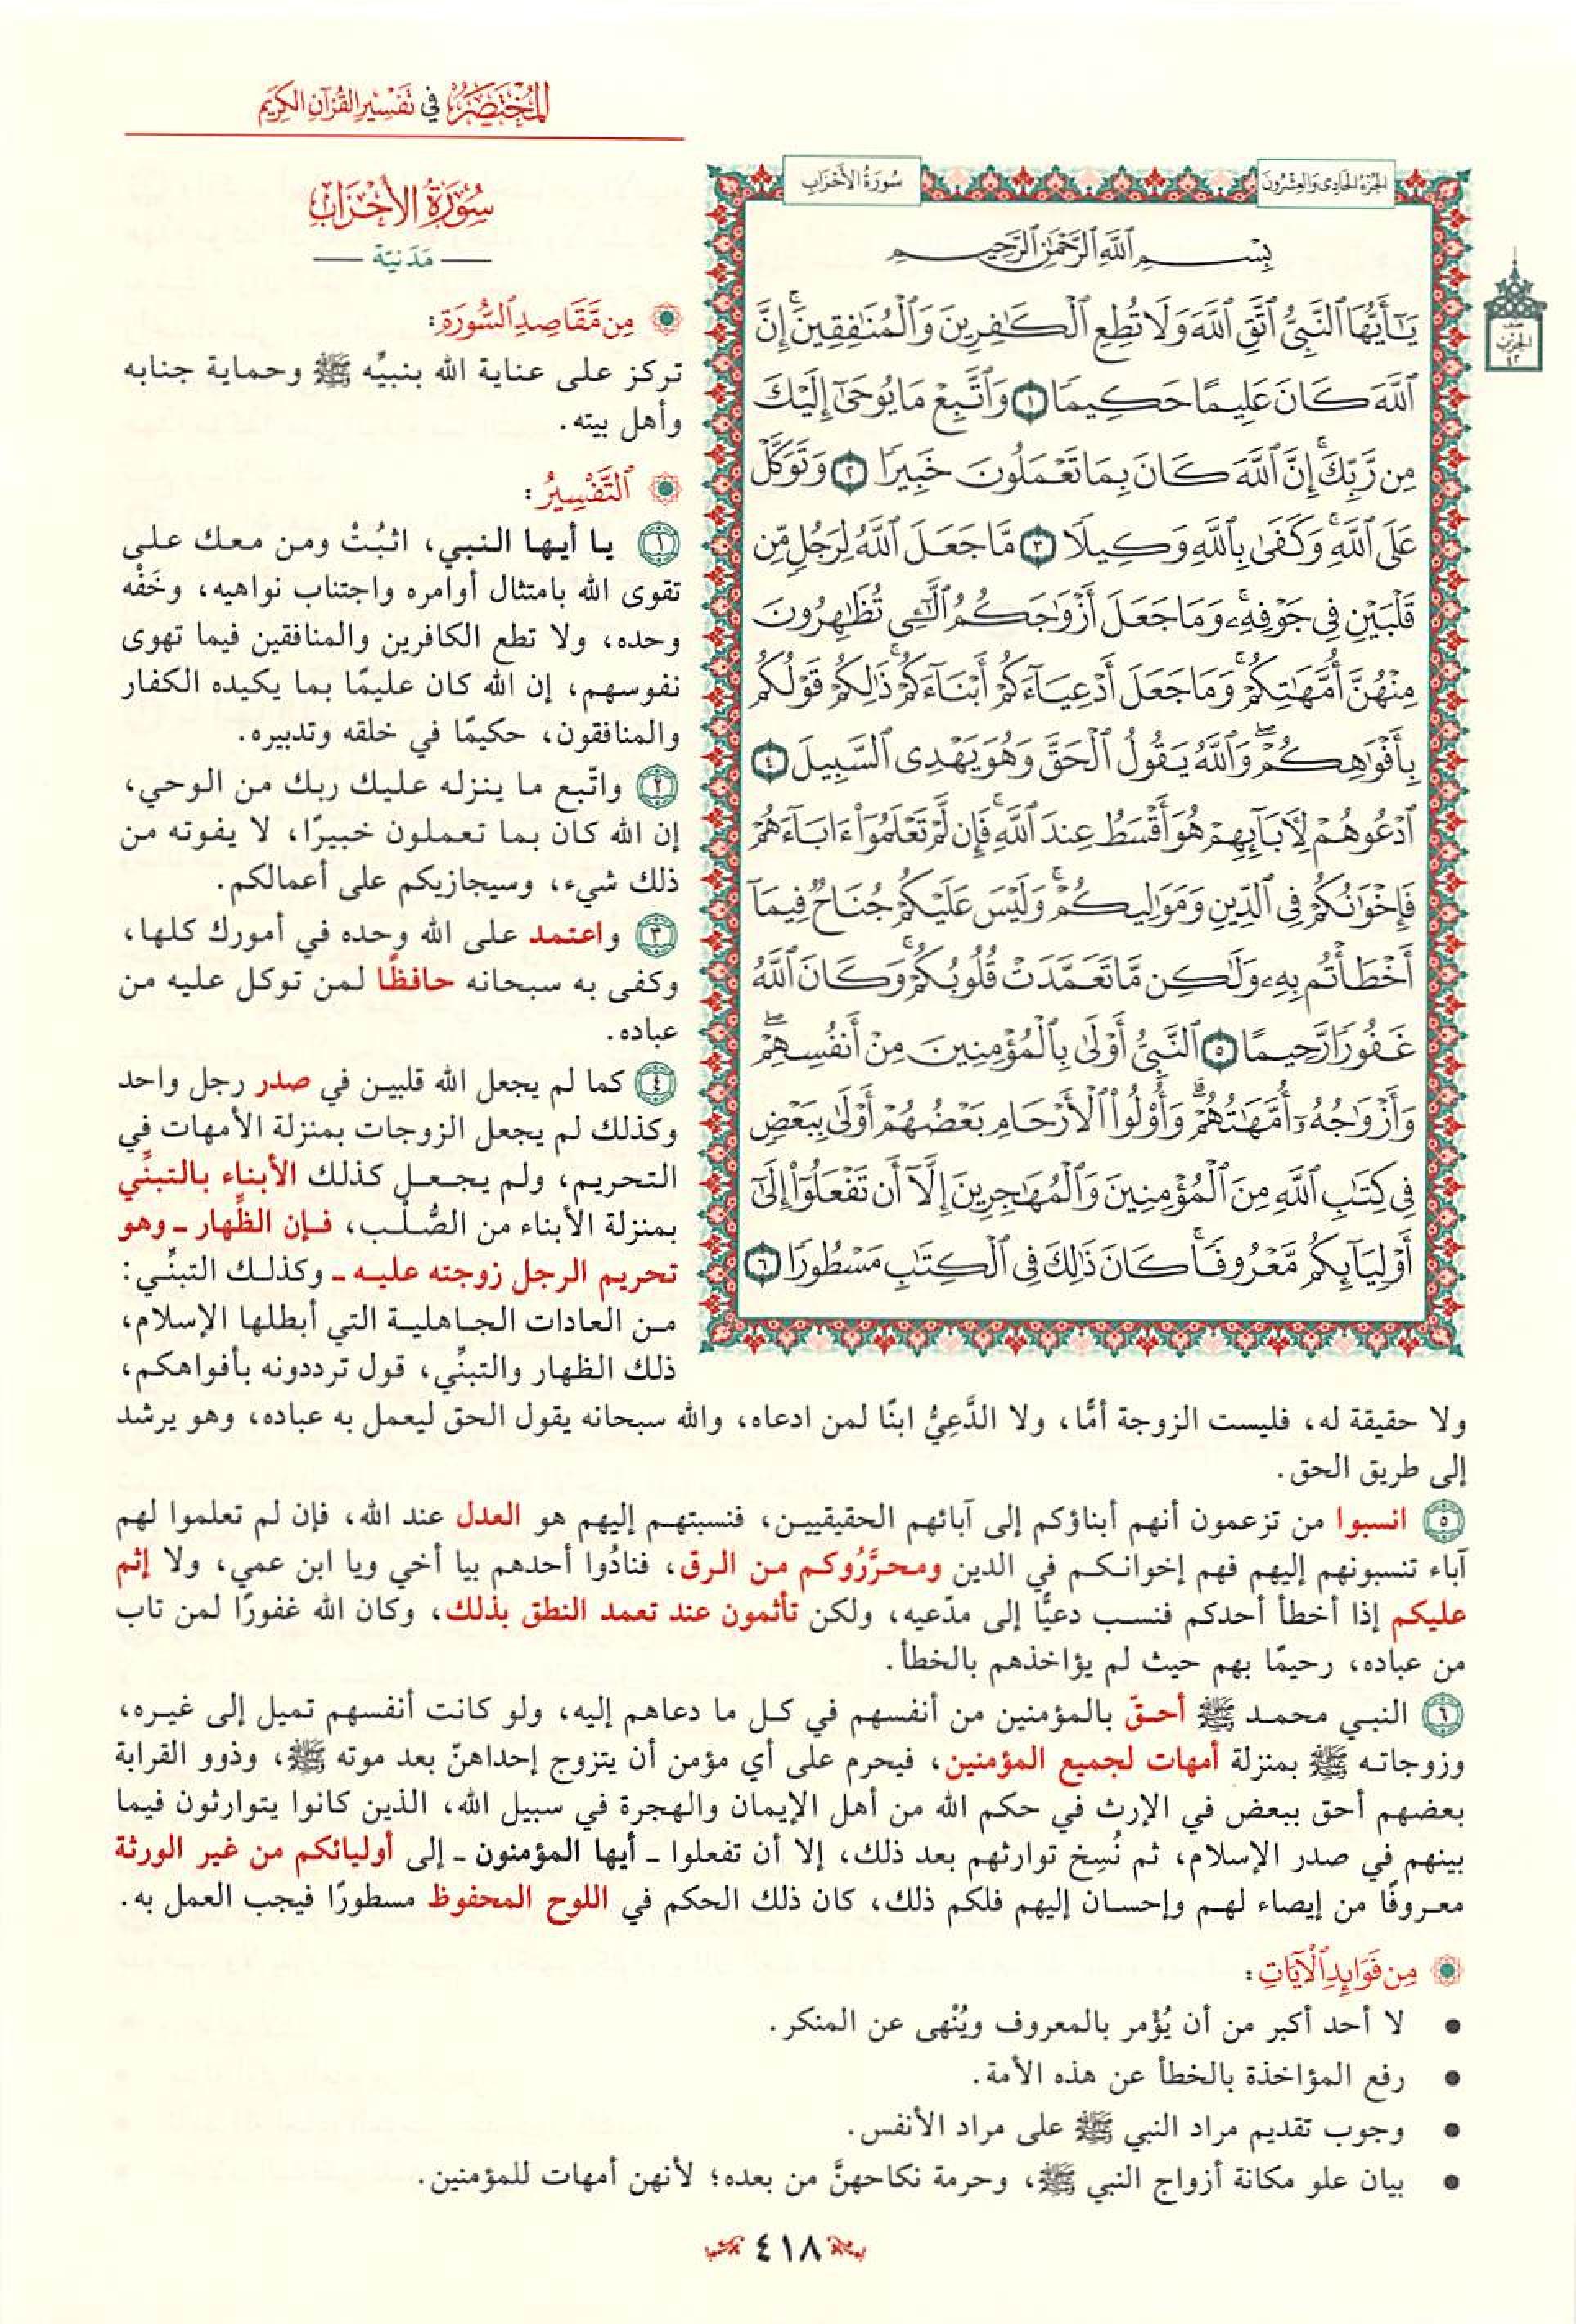 المختصر في تفسير القرآن الكريم
الجزء الحادي والعشرون
سورة الأحزاب
بِسْمِ ٱللَّهِ ٱلرَّحْمَٰنِ ٱلرَّحِيمِ
يَـٰٓأَيُّهَا ٱلنَّبِىُّ ٱتَّقِ ٱللَّهَ وَلَا تُطِعِ ٱلْكَـٰفِرِينَ وَٱلْمُنَـٰفِقِينَۗ إِنَّ
ٱللَّهَ كَانَ عَلِيمًا حَكِيمًا ١ وَٱتَّبِعْ مَا يُوحَىٰٓ إِلَيْكَ
مِن رَّبِّكَۚ إِنَّ ٱللَّهَ كَانَ بِمَا تَعْمَلُونَ خَبِيرًا ٢ وَتَوَكَّلْ
عَلَى ٱللَّهِۚ وَكَفَىٰ بِٱللَّهِ وَكِيلًا ٣ مَّا جَعَلَ ٱللَّهُ لِرَجُلٍ مِّن
قَلْبَيْنِ فِى جَوْفِهِۦۚ وَمَا جَعَلَ أَزْوَٰجَكُمُ ٱلَّـٰٓـِٔى تُظَـٰهِرُونَ
مِنْهُنَّ أُمَّهَـٰتِكُمْۚ وَمَا جَعَلَ أَدْعِيَآءَكُمْ أَبْنَآءَكُمْۚ ذَٰلِكُمْ قَوْلُكُم
بِأَفْوَٰهِكُمْۖ وَٱللَّهُ يَقُولُ ٱلْحَقَّ وَهُوَ يَهْدِى ٱلسَّبِيلَ ٤
ٱدْعُوهُمْ لِـَٔابَآئِهِمْ هُوَ أَقْسَطُ عِندَ ٱللَّهِۚ فَإِن لَّمْ تَعْلَمُوٓا۟ ءَابَآءَهُمْ
فَإِخْوَٰنُكُمْ فِى ٱلدِّينِ وَمَوَٰلِيكُمْۚ وَلَيْسَ عَلَيْكُمْ جُنَاحٌ فِيمَآ
أَخْطَأْتُم بِهِۦ وَلَـٰكِن مَّا تَعَمَّدَتْ قُلُوبُكُمْۚ وَكَانَ ٱللَّهُ
غَفُورًا رَّحِيمًا ٥ ٱلنَّبِىُّ أَوْلَىٰ بِٱلْمُؤْمِنِينَ مِنْ أَنفُسِهِمْۖ
وَأَزْوَٰجُهُۥٓ أُمَّهَـٰتُهُمْۗ وَأُو۟لُوا۟ ٱلْأَرْحَامِ بَعْضُهُمْ أَوْلَىٰ بِبَعْضٍ
فِى كِتَـٰبِ ٱللَّهِ مِنَ ٱلْمُؤْمِنِينَ وَٱلْمُهَـٰجِرِينَ إِلَّآ أَن تَفْعَلُوٓا۟ إِلَىٰٓ
أَوْلِيَآئِكُم مَّعْرُوفًاۚ كَانَ ذَٰلِكَ فِى ٱلْكِتَـٰبِ مَسْطُورًا ٦
الحزب
٤٢
سورة الأحزاب
مَدَنيّة
من مَّقَاصِدِ السُّورَةِ:
تركز على عناية الله بنبيِّه ﷺ وحماية جنابه
وأهل بيته.
التَّفْسِيرُ:
١ يا أيها النبي، اثبُتْ ومن معك على
تقوى الله بامتثال أوامره واجتناب نواهيه، وخَفْه
وحده، ولا تطع الكافرين والمنافقين فيما تهوى
نفوسهم، إن الله كان عليمًا بما يكيده الكفار
والمنافقون، حكيمًا في خلقه وتدبيره.
٢ واتّبع ما ينزله عليك ربك من الوحي،
إن الله كان بما تعملون خبيرًا، لا يفوته من
ذلك شيء، وسيجازيكم على أعمالكم.
٣ واعتمد على الله وحده في أمورك كلها،
وكفى به سبحانه حافظًا لمن توكل عليه من
عباده.
٤ كما لم يجعل الله قلبين في صدر رجل واحد
وكذلك لم يجعل الزوجات بمنزلة الأمهات في
التحريم، ولم يجعل كذلك الأبناء بالتبنِّي
بمنزلة الأبناء من الصُّلْب، فإن الظِّهار ـ وهو
تحريم الرجل زوجته عليه ـ وكذلك التبنِّي:
من العادات الجاهلية التي أبطلها الإسلام،
ذلك الظهار والتبنِّي، قول ترددونه بأفواهكم،
ولا حقيقة له، فليست الزوجة أمًّا، ولا الدَّعِيُّ ابنًا لمن ادعاه، والله سبحانه يقول الحق ليعمل به عباده، وهو يرشد
إلى طريق الحق.
٥ انسبوا من تزعمون أنهم أبناؤكم إلى آبائهم الحقيقيين، فنسبتهم إليهم هو العدل عند الله، فإن لم تعلموا لهم
آباء تنسبونهم إليهم فهم إخوانكم في الدين ومحرَّرُوكم من الرق، فنادُوا أحدهم بيا أخي ويا ابن عمي، ولا إثم
عليكم إذا أخطأ أحدكم فنسب دعيًّا إلى مدّعيه، ولكن تأثمون عند تعمد النطق بذلك، وكان الله غفورًا لمن تاب
من عباده، رحيمًا بهم حيث لم يؤاخذهم بالخطأ.
٦ النبي محمد ﷺ أحقّ بالمؤمنين من أنفسهم في كل ما دعاهم إليه، ولو كانت أنفسهم تميل إلى غيره،
وزوجاته ﷺ بمنزلة أمهات لجميع المؤمنين، فيحرم على أي مؤمن أن يتزوج إحداهنّ بعد موته ﷺ، وذوو القرابة
بعضهم أحق ببعض في الإرث في حكم الله من أهل الإيمان والهجرة في سبيل الله، الذين كانوا يتوارثون فيما
بينهم في صدر الإسلام، ثم نُسِخ توارثهم بعد ذلك، إلا أن تفعلوا ـ أيها المؤمنون ـ إلى أوليائكم من غير الورثة
معروفًا من إيصاء لهم وإحسان إليهم فلكم ذلك، كان ذلك الحكم في اللوح المحفوظ مسطورًا فيجب العمل به.
مِن فَوَائِدِ الْآيَاتِ:
• لا أحد أكبر من أن يُؤْمر بالمعروف ويُنْهى عن المنكر.
• رفع المؤاخذة بالخطأ عن هذه الأمة.
• وجوب تقديم مراد النبي ﷺ على مراد الأنفس.
• بيان علو مكانة أزواج النبي ﷺ، وحرمة نكاحهنَّ من بعده؛ لأنهن أمهات للمؤمنين.
٤١٨